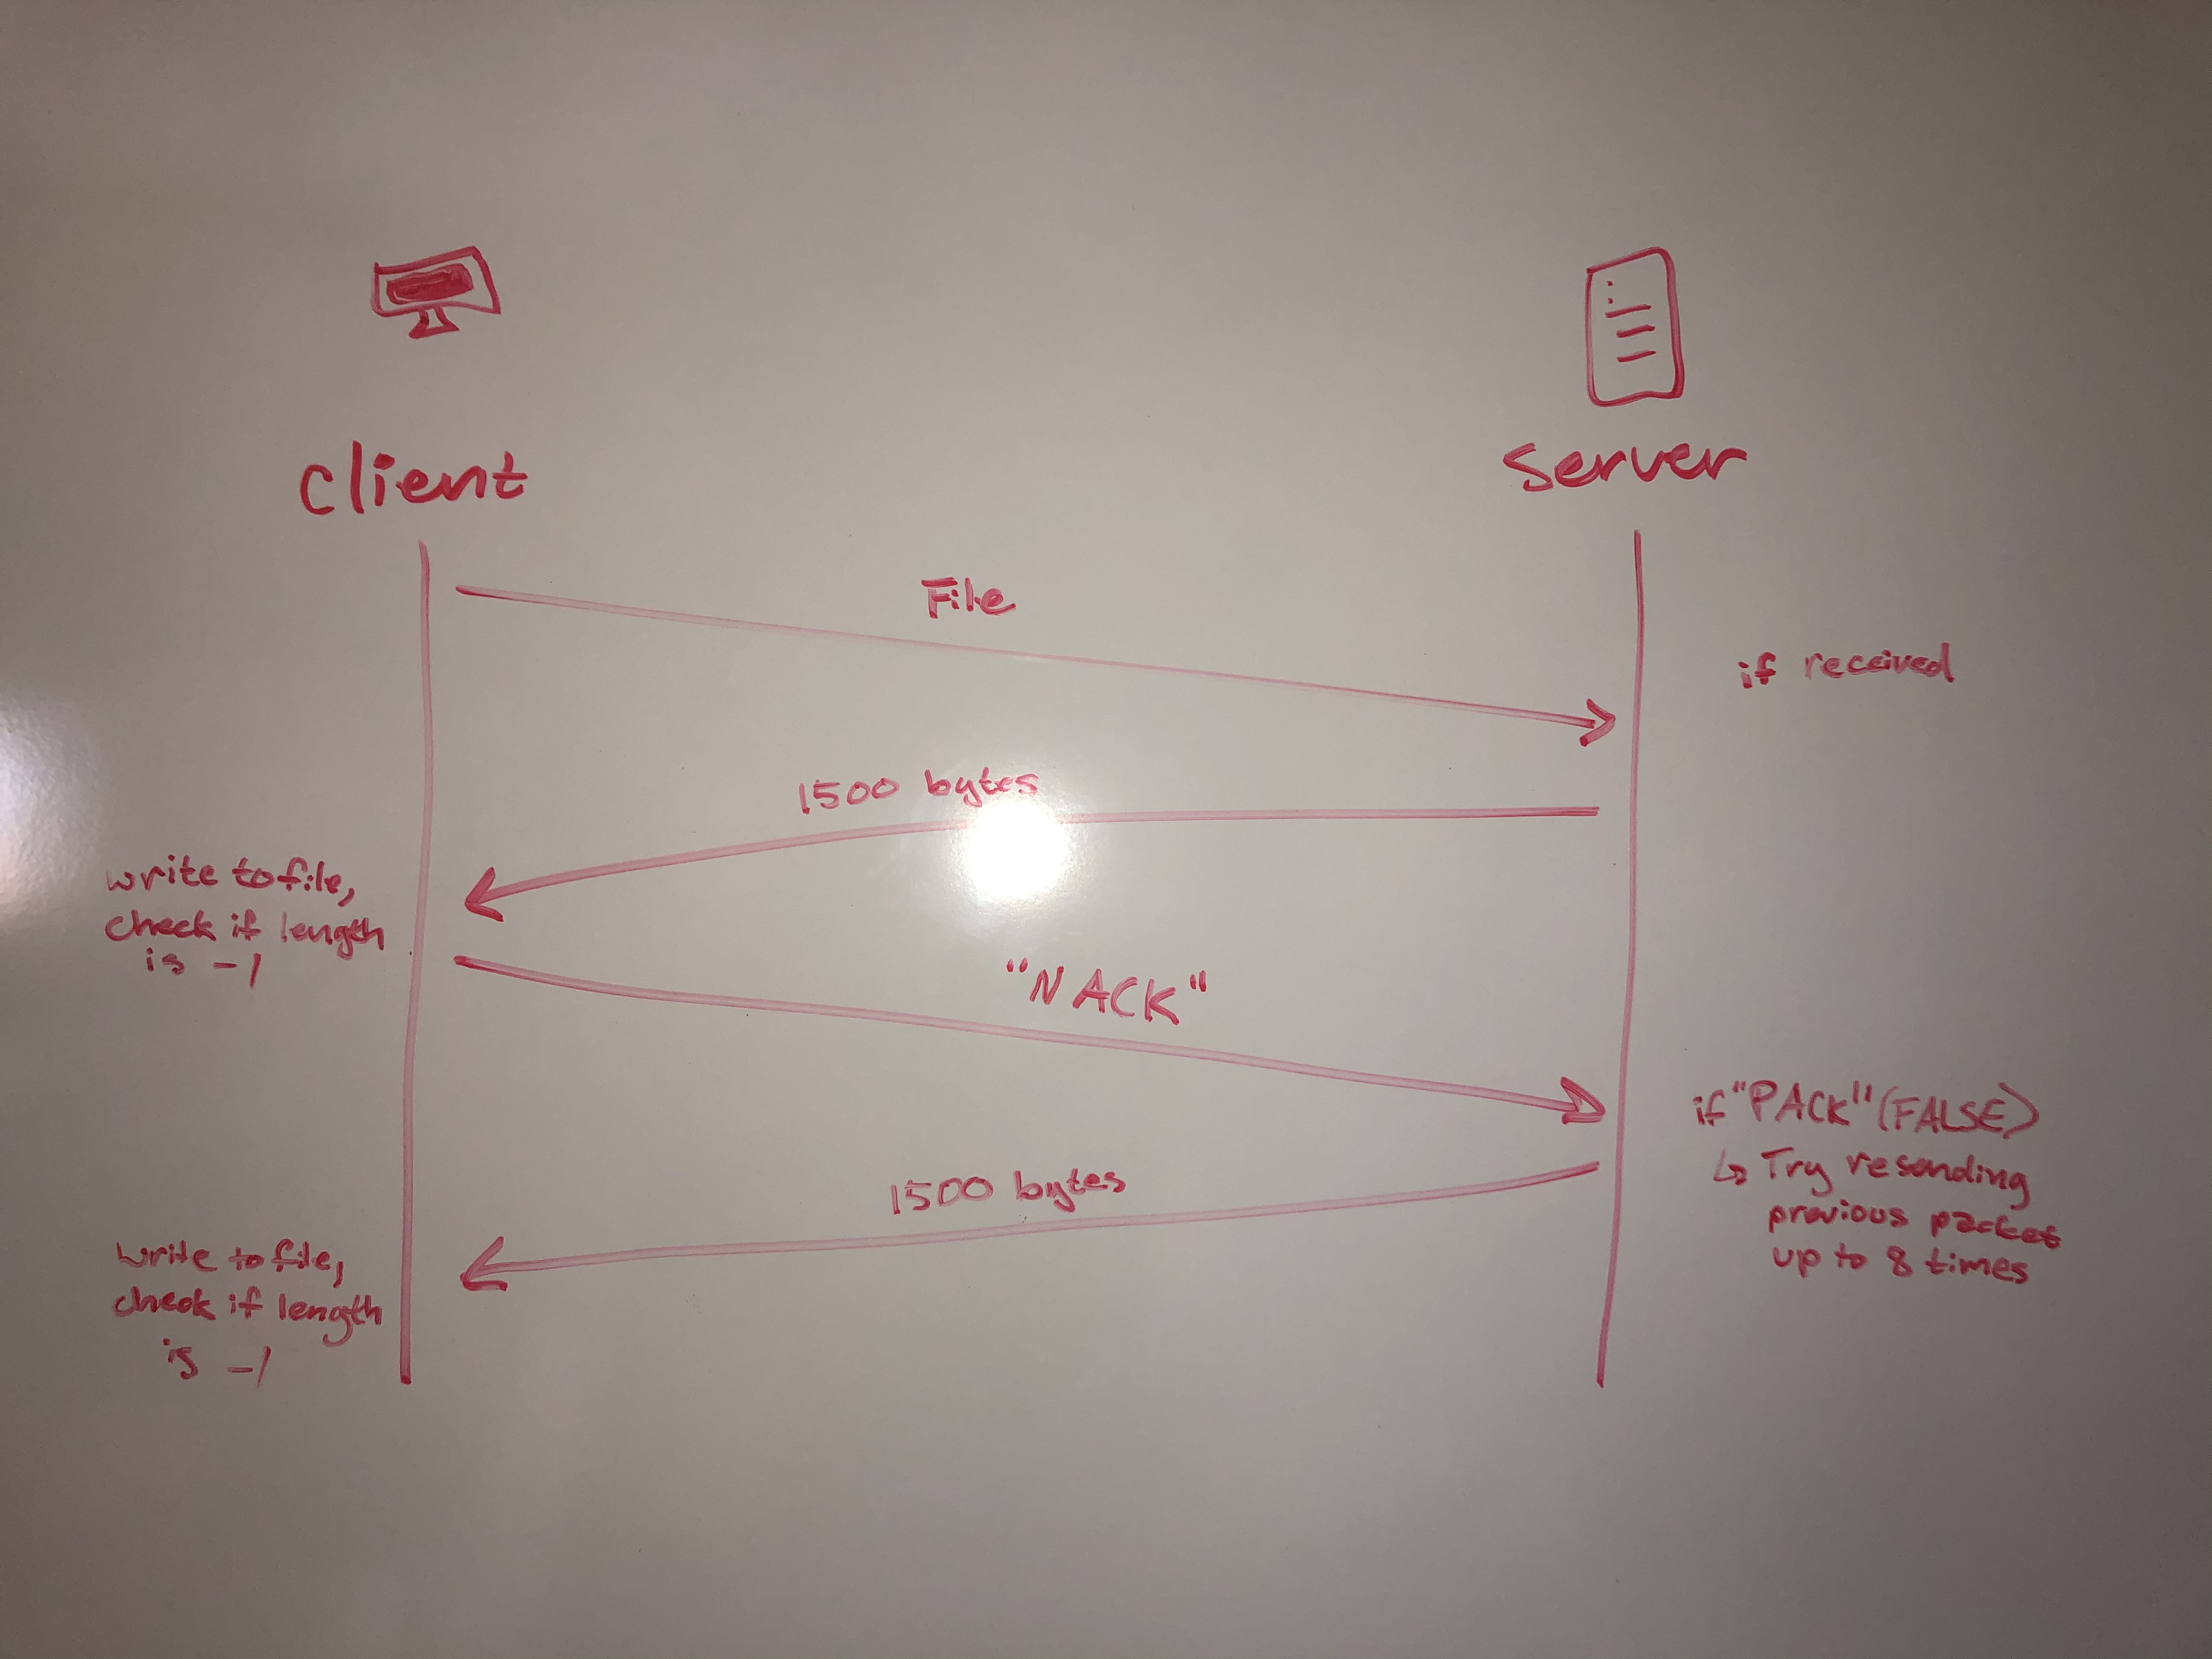 client
Server
File
if received
1500 bytes
write to file,
check if length
is -1
"NACK"
if "PACK" (FALSE)
↳ Try resending
previous packet
up to 8 times
1500 bytes
write to file,
check if length
is -1